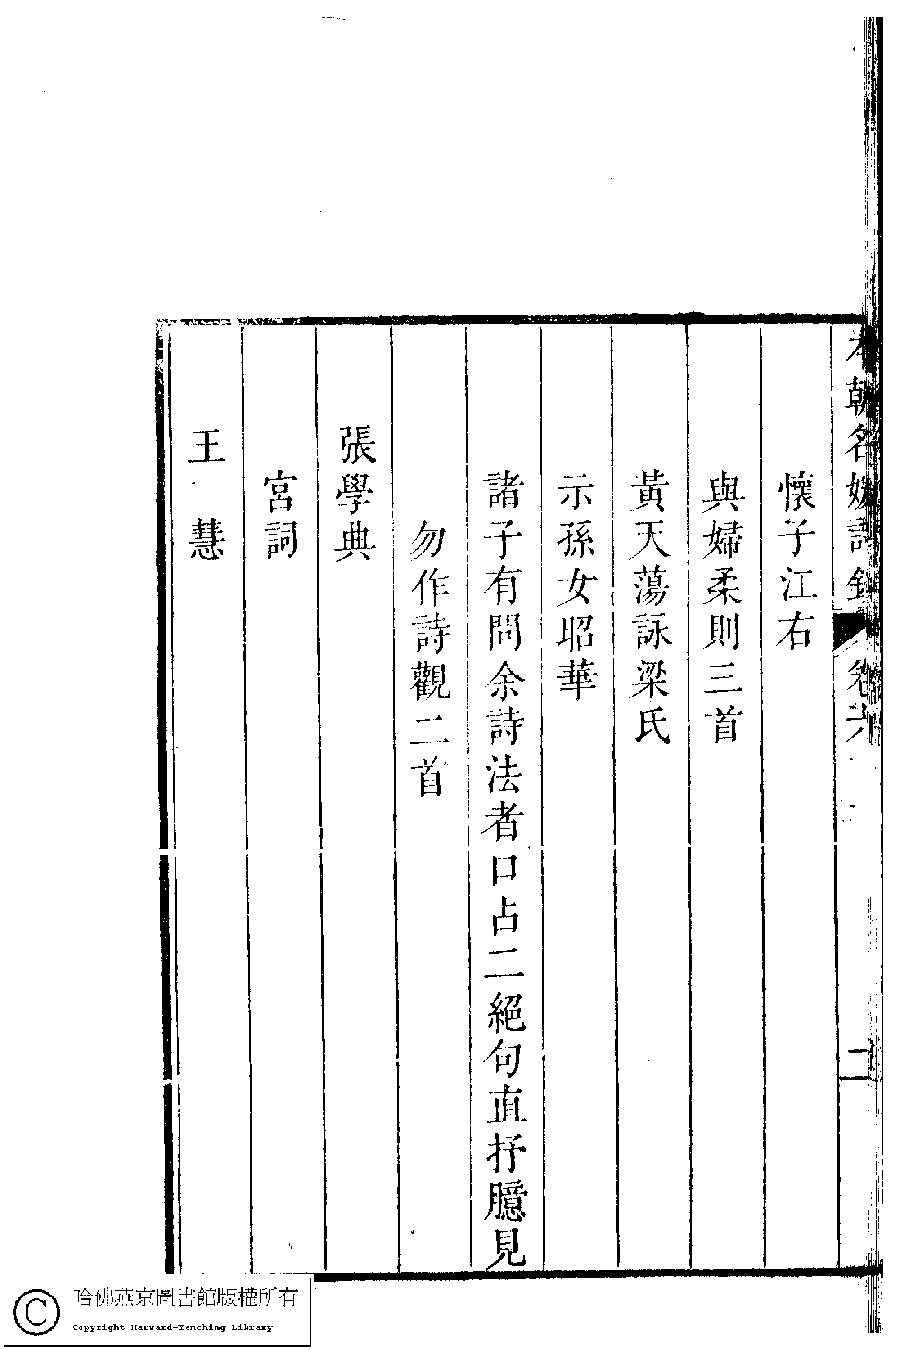 本朝名媛詩鈔 卷六 二
懷子江右
與婦柔則三首
黃天蕩詠梁氏
示孫女昭華
諸子有問余詩法者口占二絕句直抒臆見
勿作詩觀二首
張學典
宮詞
王慧
哈佛燕京圖書館版權所有
Copyright Harvard-Yenching Library